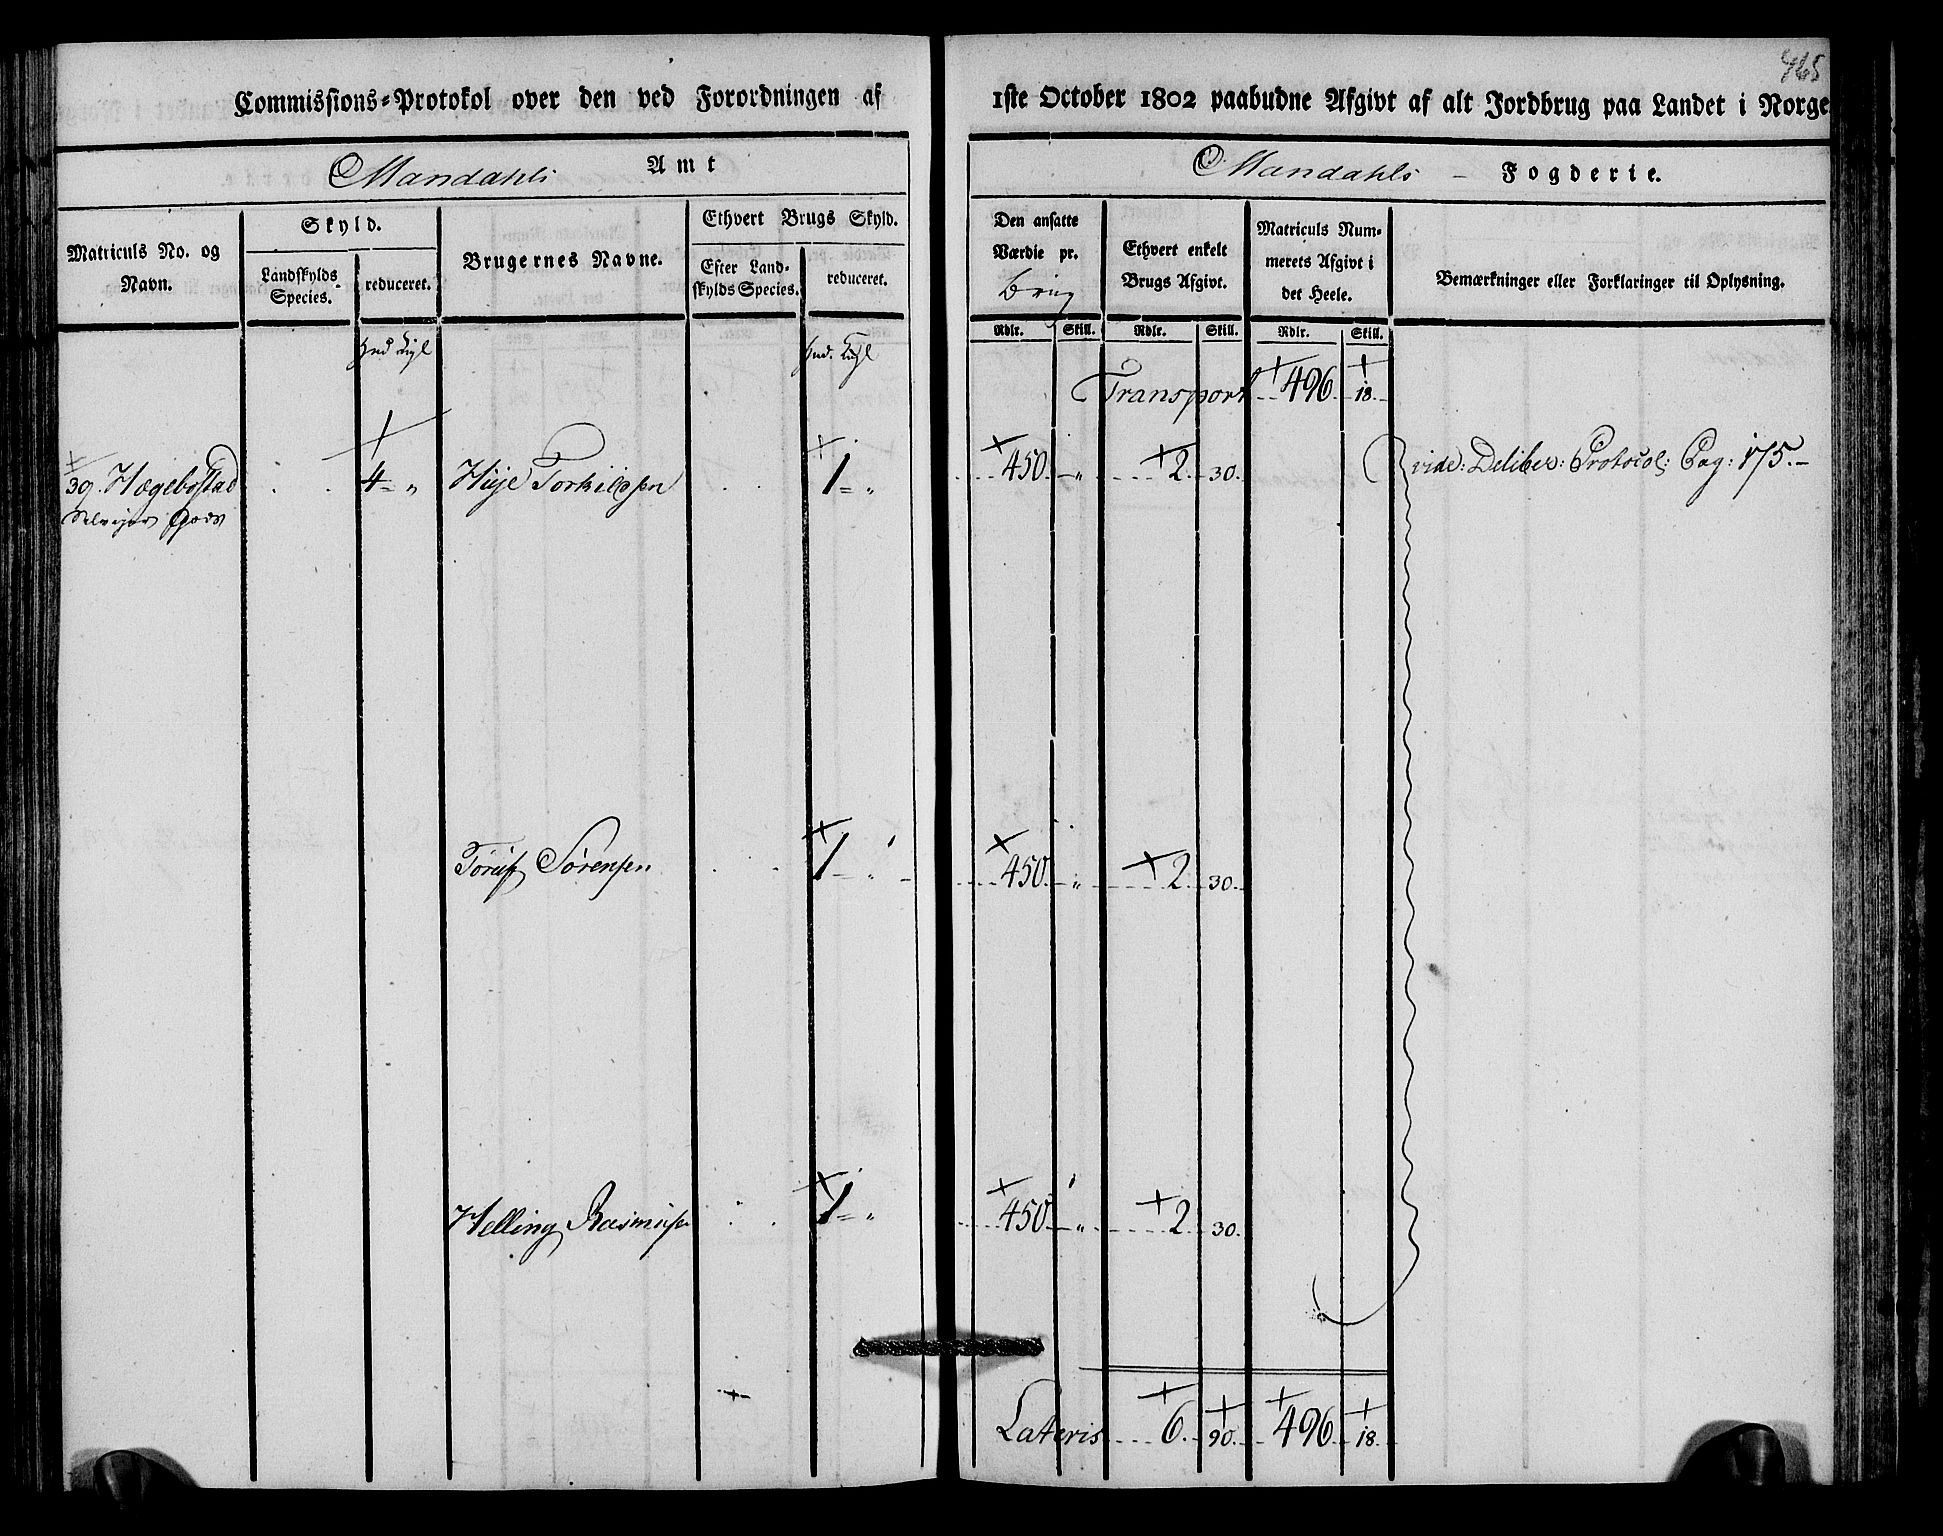 465
Commissions-Protokol over den ved Forordningen af 1ste October 1802 paabudne Afgivt af alt Jordbrug paa Landet i Norge
Mandahls Amt
Mandahls Fogderie.
Matriculs No. og Navn.
Skyld.
Landskylds Species.
reduceret.
Brugernes Navne.
Ethvert Brugs Skyld.
Efter Landskylds Species.
reduceret.
Den ansatte Værdie pr. brug
Ethvert enkelt Brugs Afgivt.
Matriculs Nummerets Afgivt i det Heele.
Bemærkninger eller Forklaringer til Oplysning.
Rdlr. Skill. Rdlr. Skill. Rdlr. Skill.
Transport 496 18
39. Hægebøstad 4 = " Torkilsen 1 = " 450 " 2 30 vide: Deliber: Protocol: Pag: 175.
Selveier Gods
Sørensen 1 = " 450 " 2 30
Helling Rasmusen 1 = " 450 " 2 30
Lateris 6 90 496 18